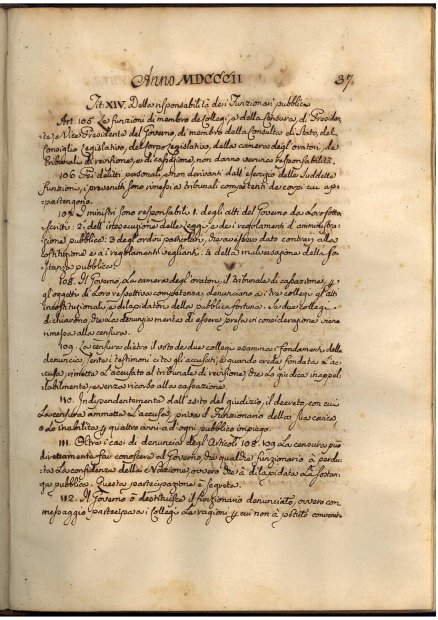 Anno MDCCCII 37.
Tit: XIV. Della risponsabilità dei Funzionari pubblici
Art: 105. Le funzioni di membro de Collegi, e della Censura, di Presiden-
te, e Vice Presidente del Governo, di membro della Consulta di Stato, del
Consiglio legislativo, del Corpo legislativo, della camera degl'oratori, de
Tribunali di revisione, e di cassazione, non danno veruna responsabilità.
106. Per delitti personali, e non derivanti dall'esercizio delle suddette
funzioni, i prevenuti sono rimessi a tribunali competenti de corpi cui ap-
partengono.
107. I ministri sono responsabili 1. degli atti del Governo da loro sotto-
scritti: 2. dell'inesecuzione delle Leggi, e dei regolamenti d'amministra-
zione pubblica: 3 degl'ordini particolari, che avessero dato contrarj alla
costituzione e a i regolamenti veglianti: 4 della malversazione della so-
stanza pubblica.
108. Il Governo, la camera degl'oratori, il tribunale di cassazione,
gli oggetti di loro respettiva competenza, denunciano a i tre collegi gl'atti
incostituzionali, e dilapidatori della pubblica fortuna. Se due collegi
dichiarono, che la denuncia merita di essere presa in considerazione viene
rimessa alla censura.
109. La censura dietro il voto de due collegi esamina i fondamenti della
denuncia, sente i testimonj cita gli accusati, e quando crede fondata l'ac-
cusa, rimette l'accusato al tribunale di revisione, che lo giudica inappel-
labilmente, e senza ricorso alla cassazione.
110. Indipendentemente dall'esito del giudizio, il decreto, con cui
la censura ammette l'accusa, priva il Funzionario della sua carica,
e lo inabilita quattro anni ad ogni pubblico impiego.
111. Oltre i casi di denuncia degl'Articoli 108. 109 la censura può
direttamente far conoscere al Governo, che qualche funzionario à perdu-
ta la confidenza della Nazione, ovvero che à dilapidata la sostan-
za pubblica. Questa partecipazione è segreta.
112. Il Governo ò destituisce il funzionario denunciato, ovvero con
messaggio partecipa a i Collegi le ragioni cui non à potuto convenir-